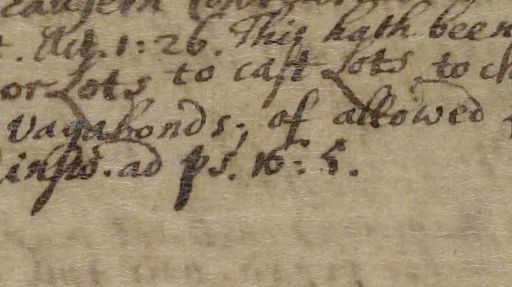 . Act. 1: 26. This hath been
or Lots to cast Lots to ch
Vagabonds; of allowed
ad ps. 16: 5.